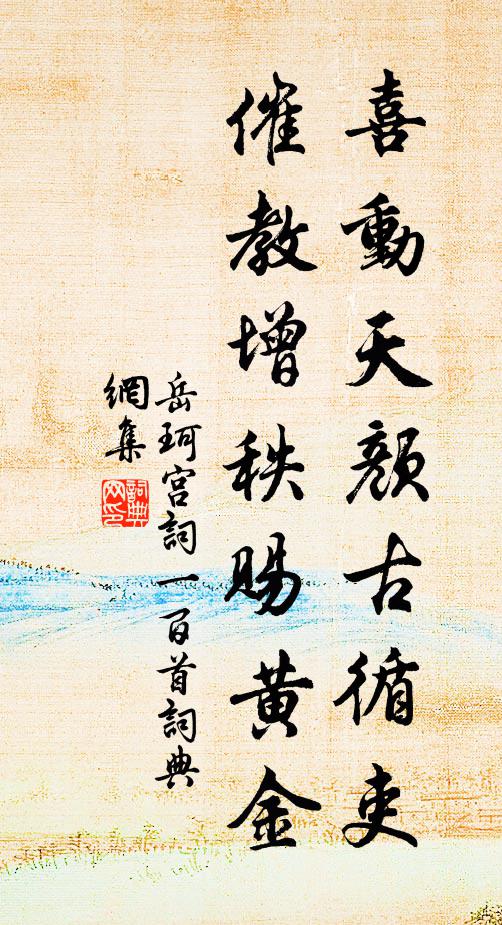 喜動天顏古循吏
催教增秩賜黃金
岳珂宮詞一百首詞典
網集
詞典
网印